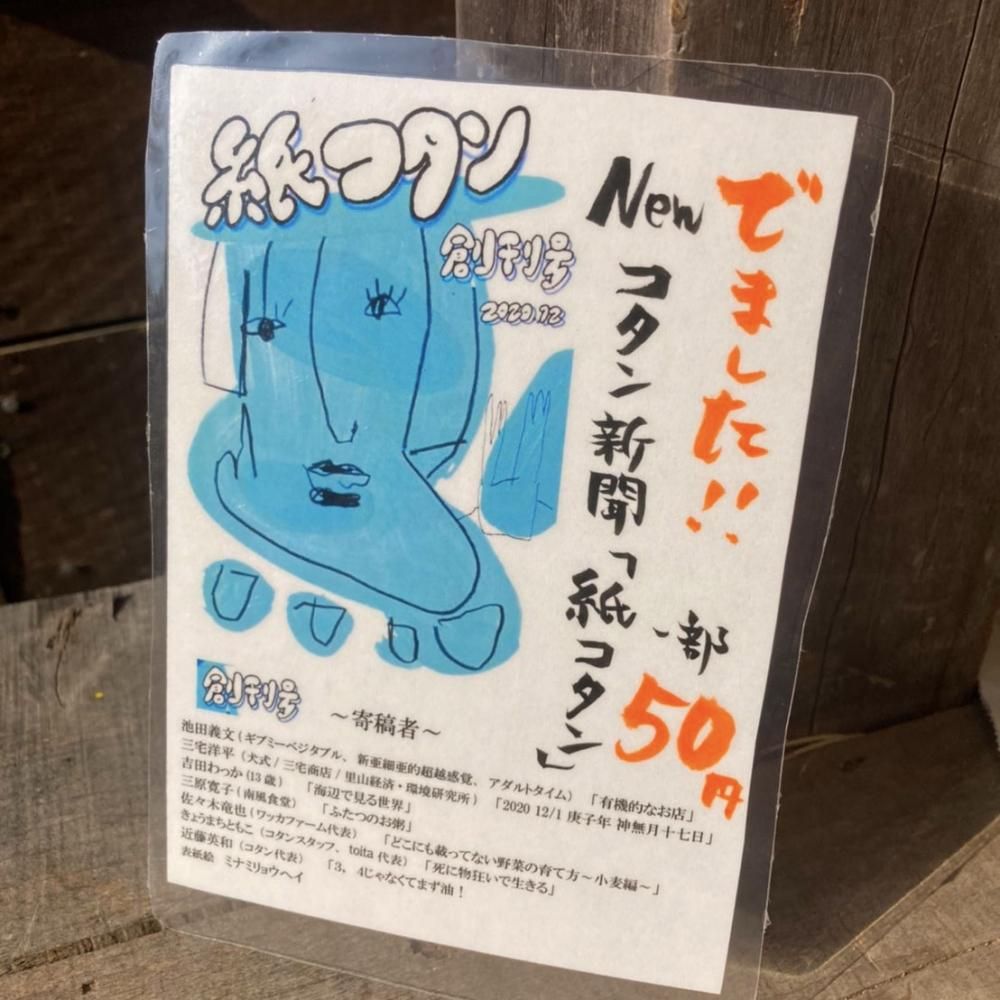 でました!!
New コタン新聞「紙コタン」
一部
50円
紙コタン
創刊号
2020.12
創刊号
～寄稿者～
池田義文(ギブミーベジタブル、新亜細亜的超越感覚、アダルトタイム) 「有機的なお店」
三宅洋平(犬式/三宅商店/里山経済・環境研究所) 「2020 12/1 庚子年 神無月十七日」
吉田わっか(13歳) 「海辺で見る世界」
三原寛子(南風食堂) 「ふたつのお粥」
佐々木竜也(ワッカファーム代表) 「どこにも載ってない野菜の育て方～小麦編～」
きょうまちともこ(コタンスタッフ、toita代表) 「死に物狂いで生きる」
近藤英和(コタン代表) 「3，4じゃなくてまず油！
表紙絵 ミナミリョウヘイ